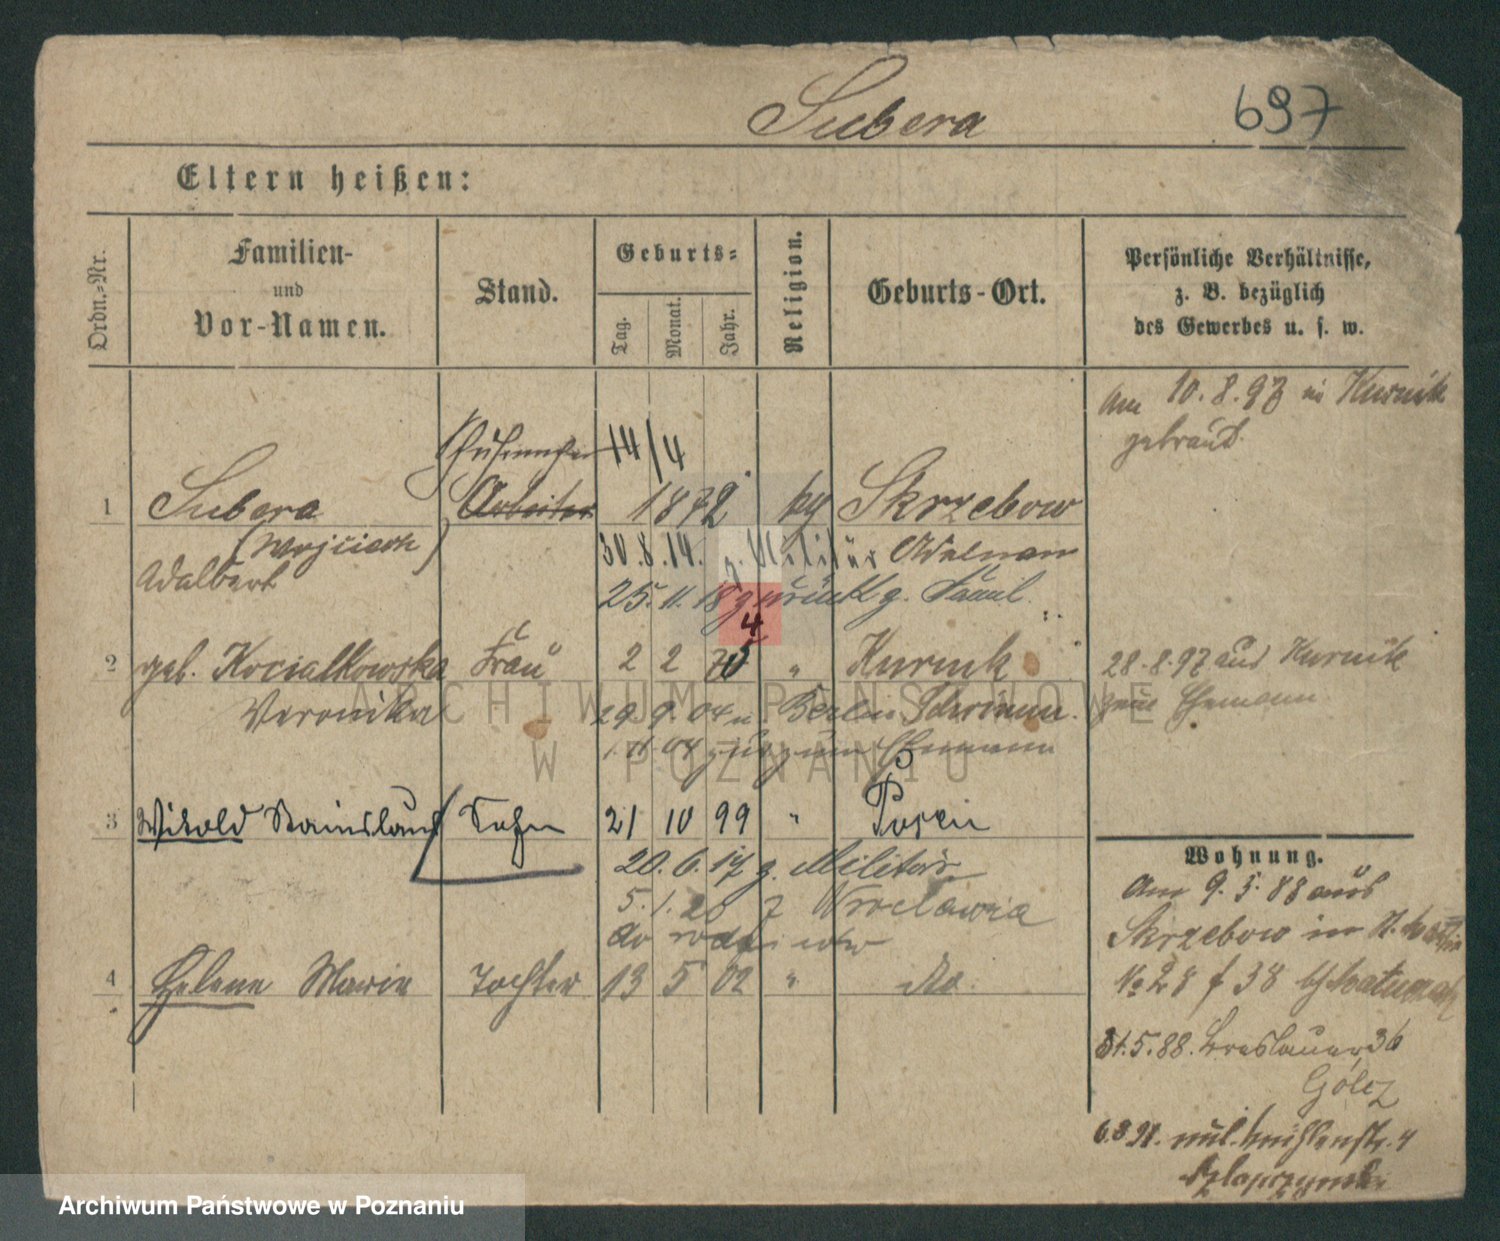 Subera
697
Eltern heißen:
Ordn.-Nr.
Familien-
und
Vor-Namen.
Stand.
Geburts-
Tag.
Monat.
Jahr.
Religion.
Geburts-Ort.
Persönliche Verhältnisse,
z. B. bezüglich
des Gewerbes u. s. w.
Am 10.8.97 in Kurnik
getraut.
14/4
1 Subera Arbeiter 1872 kg Skrzebow
(Wojciech)
Adalbert
30.8.14. z. Militär Adelnau
25.11.18 zurück z. Famil.
4
2 geb. Kocialkowska Frau 2 2 75 " Kurnik
Veronika
28.8.97 aus Kurnik
zum Ehemann
29 9 04 n Berlin Schrimm.
1.11.04 zur zum Ehemann
3 Witold Stanislaus Sohn 21 10 99 " Posen
20.6.17 z. Militär
5.1.20 z Wroclawia
do
4 Helene Marie Tochter 13 5 02 " do.
Wohnung.
Am 9.5.88 aus
Skrzebow in
No 28 f 38
31.5.88. Breslauer 36
Golcz
6.3.91. Mühlenstr. 4
ARCHIWUM PAŃSTWOWE
W POZNANIU
Archiwum Państwowe w Poznaniu